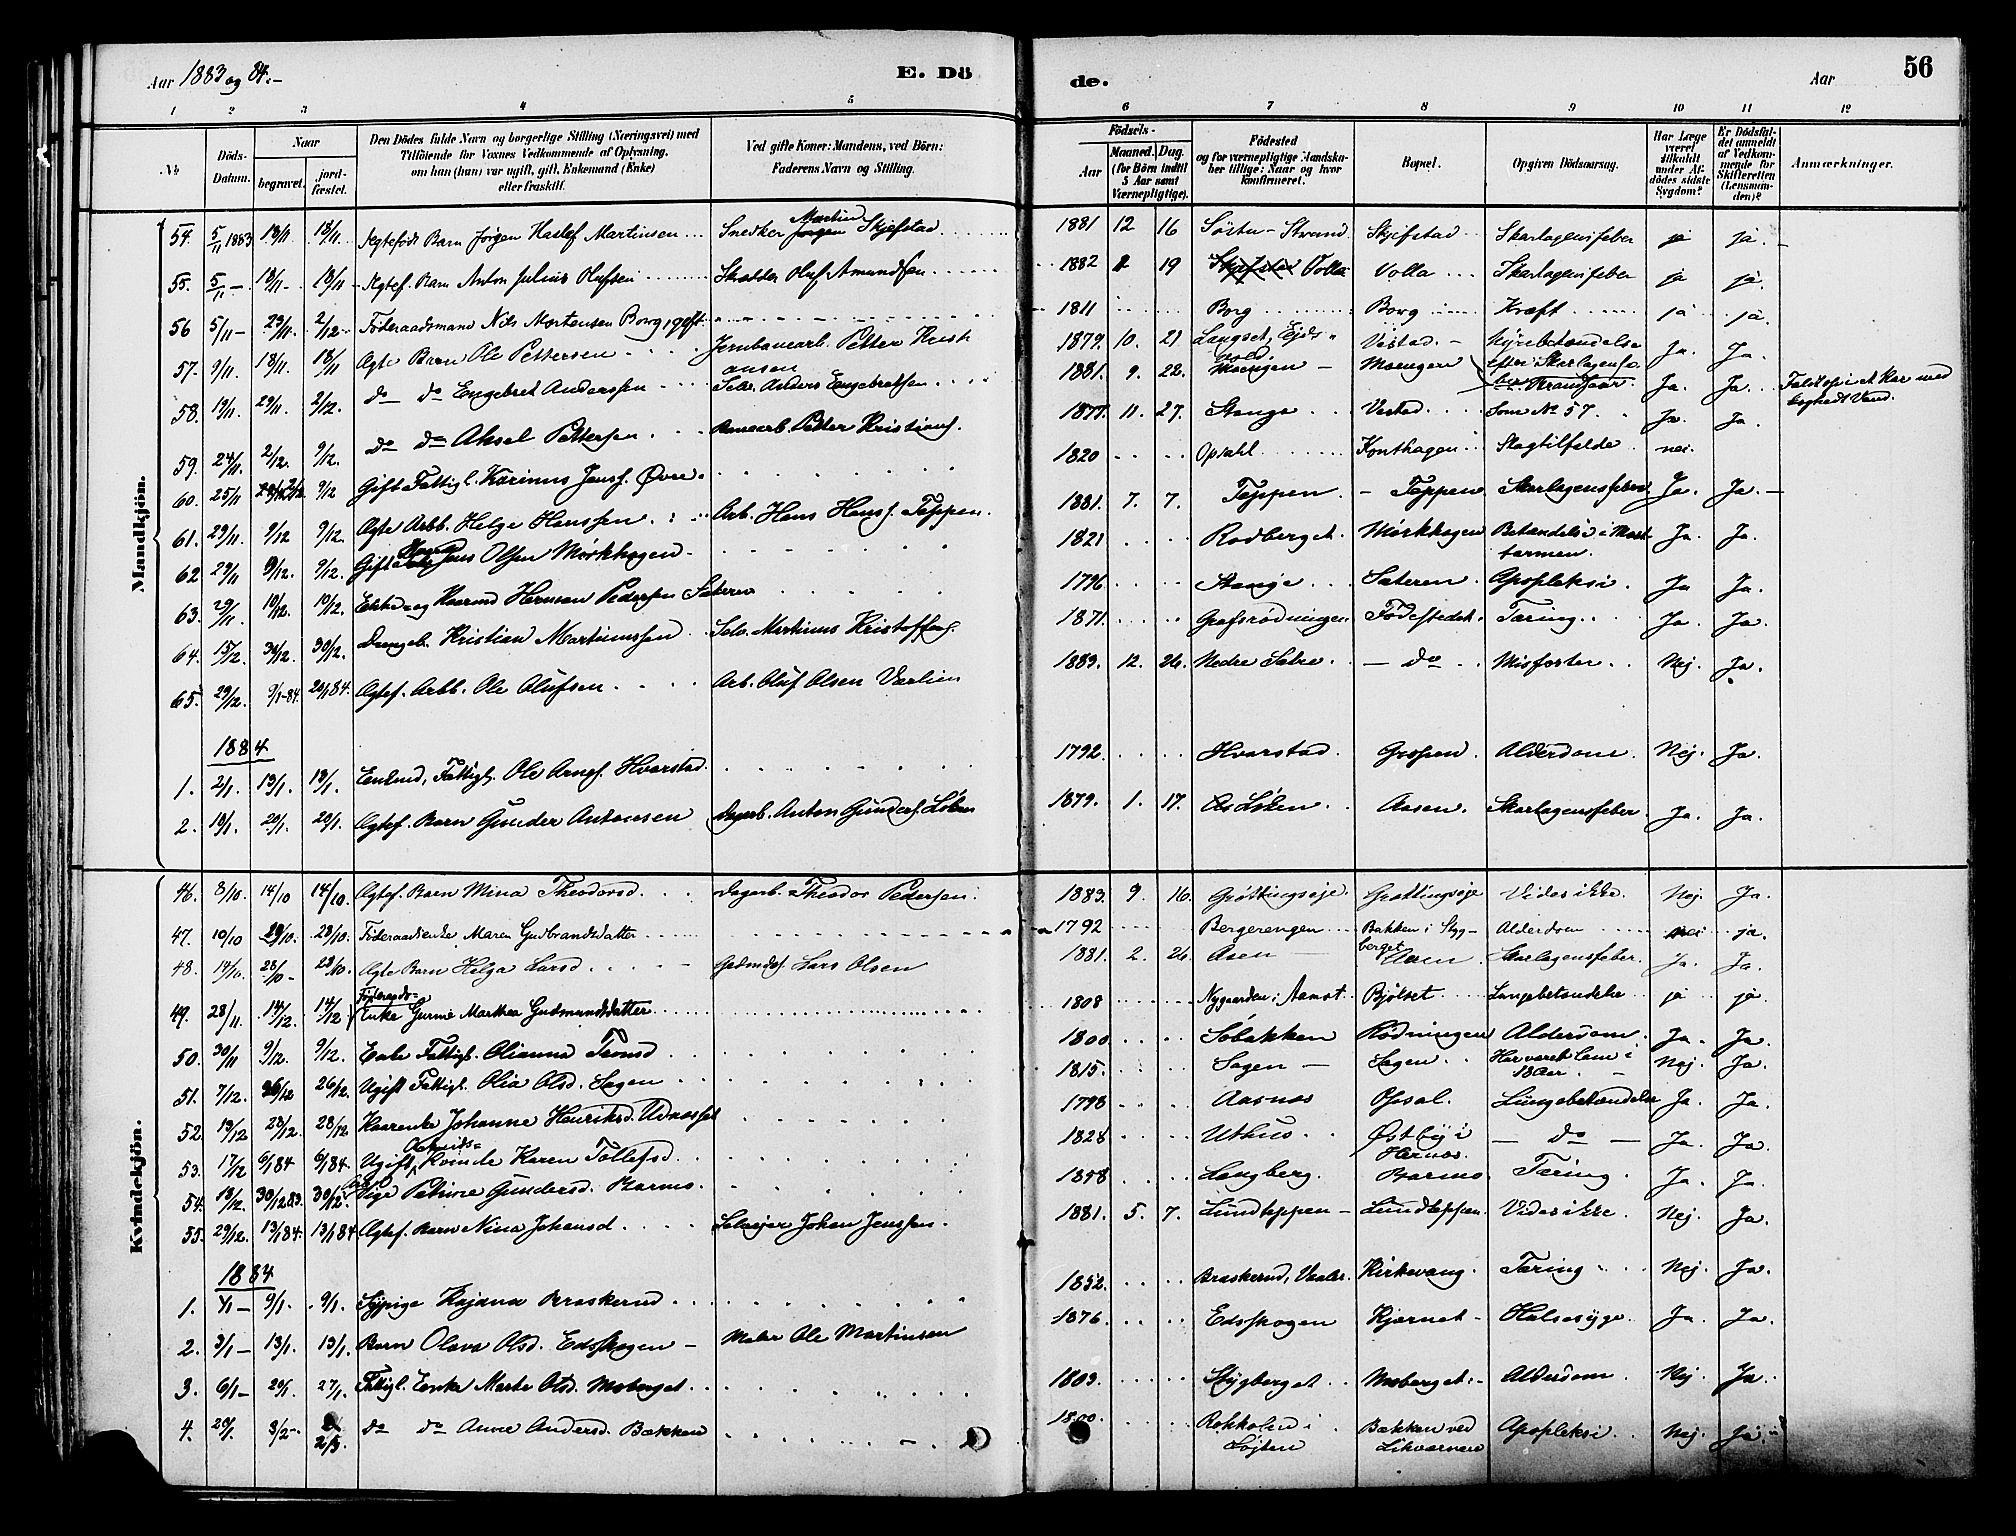 Aar 1883 og 84.-
E. Dö
de.
Aar
56
1 2 3 4 5 6 7 8 9 10 11 12
No
Döds-Datum.
Naar
begravet.
jord-fæstet.
Den Dödes fulde Navn og borgerlige Stilling (Næringsvei) med
Tilföiende for Voxnes Vedkommende af Oplysning,
om han (hun) var ugift, gift, Enkemand (Enke)
eller fraskilt.
Ved gifte Koner: Mandens, ved Börn:
Faderens Navn og Stilling.
Födsels-
Aar
Maaned. Dag.
(for Börn indtil
5 Aar samt
Værnepligtige).
Födested
og for værnepligtige Mandska-
ber tillige: Naar og hvor
konfirmeret.
Bopæl.
Opgiven Dödsaarsag.
Har Læge
været
tilkaldt
under Af-
dödes sidste
Sygdom?
Er Dödsfal-
det anmeldt
af Vedkom-
mende for
Skifteretten
(Lensman-
den)?
Anmærkninger.
Mandkjön.
54. 5/11 1883 18/11 18/11. Ægtefödt Barn Jørgen Hartlef Martinsen Snedker Martin Skjefstad 1881 12 16 Sörtu-Strand Skjefstad Skarlagensfeber ja ja.
55. 5/11 - 18/11 - 18/11 - Ægtef. Barn Anton Julius Olufsen Skredder Oluf Amundsen 1882 2 19 Volla Volla Skarlagensfeber ja ja.
56 5/11 - 23/11. 2/12 - Föderaadsmand Nils Mortensen Borg, gift 1811 Borg Borg Kræft ja ja.
57. 9/11. 18/11. 18/11 Ægte Barn Ole Pettersen Jernbanearb. Petter Kristiansen 1879. 10. 21 Langset, Eidsvold. Vestad. Nyrebetændelse efter Skarlagensfeber Ja. Ja.
58. 19/11. 29/11. 2/12. do do Engebret Anderssen Selv. Anders Engebretsen 1881. 9. 22. Moengen Moengen Brandsaar. Ja. Ja. Faldt op i et Kar med koghedt Vand.
59. 24/11. 2/12. 9/12. do do Aksel Pettersen Banearb. Petter Kristians. 1877. 11. 27. Stange Vestad. Som No 57. Ja. Ja.
60. 25/11 2/12 9/12 Gift Fattigl. Karinus Jensf. Øvre. 1820 Opsahl Konthagen Slagtilfælde nei.
61. 29/11. 9/12 9/12. Ægte Arbb. Helge Hanssen. Arb. Hans Hansf. Teppen. 1881. 7. 7. Teppen. Teppen Skarlagensfeber Ja. Ja.
62 29/11 9/12. 9/12. Gift Jens Olsen Mørkhagen 1821 Rodberget. Mörkhagen Betændelse i Mastarmen. Ja. Ja.
63. 29/11. 10/12. 10/12. Enkem. og Kaarmd Herman Pedersen Sæteren 1796 Stange Sæteren. Apopleksi. Ja Ja.
64. 15/12. 30/12. 30/12. Drengeb. Kristian Martinussen Selv. Martinus Kristoffers. 1871. Grafsrödningen Födestedet. Tæring. Ja. Ja.
65. 29/12. 9/1-84. 20/1 84. Ægtef. Arbb. Ole Olufsen. Arb. Oluf Olsen Værlien 1883. 12. 26. Nedre Sætre do Misfoster Nej. Ja.
1884
1. 2/1. 13/1. 13/1. Enkmd, Fattigl. Ole Arnes. Hvarstad. 1792. Hvarstad. Gropen. Alderdom. Nej. Ja.
2. 19/1. 20/1. 20/1. Ægtef. Barn Gunder Antonsen Dagarb. Anton Gunders. Løken 1879. 1. 17. Løken. Aasen. Skarlagensfeber Ja. Ja.
Kvindekjön.
46. 8/10. 14/10 14/10. Ægtef. Barn Mina Theodorsd. Dagarb. Theodor Pedersen. 1883. 9. 16. Grøttingseje. Grøttingseje Vides ikke. Nej. Ja.
47. 10/10 28/10. 28/10. Föderaadsenke Maren Gudbrandsdatter 1792 Bergerengen Bakken i Stygberget Alderdom nei ja.
48. 14/10. 28/10 - 28/10. Ægte Barn Helga Larsd. Gaardm. Lars Olsen 1881. 2. 26. Aasen Aasen Skarlagensfeber. Ja. Ja.
49. 28/11. 14/12. 14/12 Föderaads-Enke Gunne Marthea Gudmundsdatter 1808 Nygaarden i Aamot. Bjölset Lungebetændelse ja ja.
50. 30/11 9/12. 9/12. Enke Fattigl. Olianna Tronsd. 1800 Söbakken Rödningen Alderdom. Ja. Ja.
51. 7/12. 26/12 26/12. Ugift Fattigl. Olia Olsd. Sagen 1815. Sagen Sagen Har været lam i 18 Aar. Nej. Ja.
52. 19/12 28/12. 28/12. Kaarenke Johanne Henriksd. Udnæsset 1798 Aasnes Opsal. Lungebetændelse Ja. Ja.
53. 17/12 6/1 84 6/1 84. Ugift Arbeids-Kvinde Karen Tollefsd. 1828 Uthus Østby i Hernæs. do Ja. Ja.
54. 18/12. 30/12 83. 30/12 Pige Petrine Gundersd. Barmo. 1858 Langberg. Barmo Tæring. Ja. Ja.
55. 29/12. 13/1 84. 13/1 84 Ægtef. Barn Nina Johansd. Selvejer Johan Jenssen. 1881. 5. 7. Lundteppen Lundteppen. Vides ikke. Nej. Ja.
1884
1. 1/1 - 9/1. 9/1. Sypige Kajana Braskerud 1852. Braskerud, Vaaler. Kirkevang. Tæring Nej. Ja.
2. 3/1 - 13/1. 13/1. Barn Olava Olsd. Edsskogen Maler Ole Martinsen 1876. Edsskogen Kjernet Halsesyge. Ja. Ja.
3. 6/1 - 20/1. 27/1. Fattigl. Enke Marte Olsd. Moberget 1803. Stygberget Moberget. Alderdom. Nej. Ja.
4. 20/1. 3/2 - 2/3. do do Anne Andersd. Bakken 1800. Rokkolen i Løjten Bakken ved Likværnene Apopleksi. Nej. Ja.